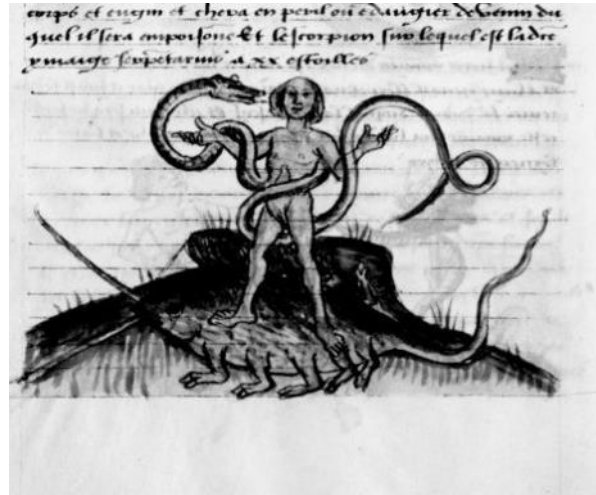 corps et engin et chera en peril ou edaugier de venin du
quel il sera empoisone Et le scorpion sur lequel est ladce
ymaige serpetarius a xx estoilles